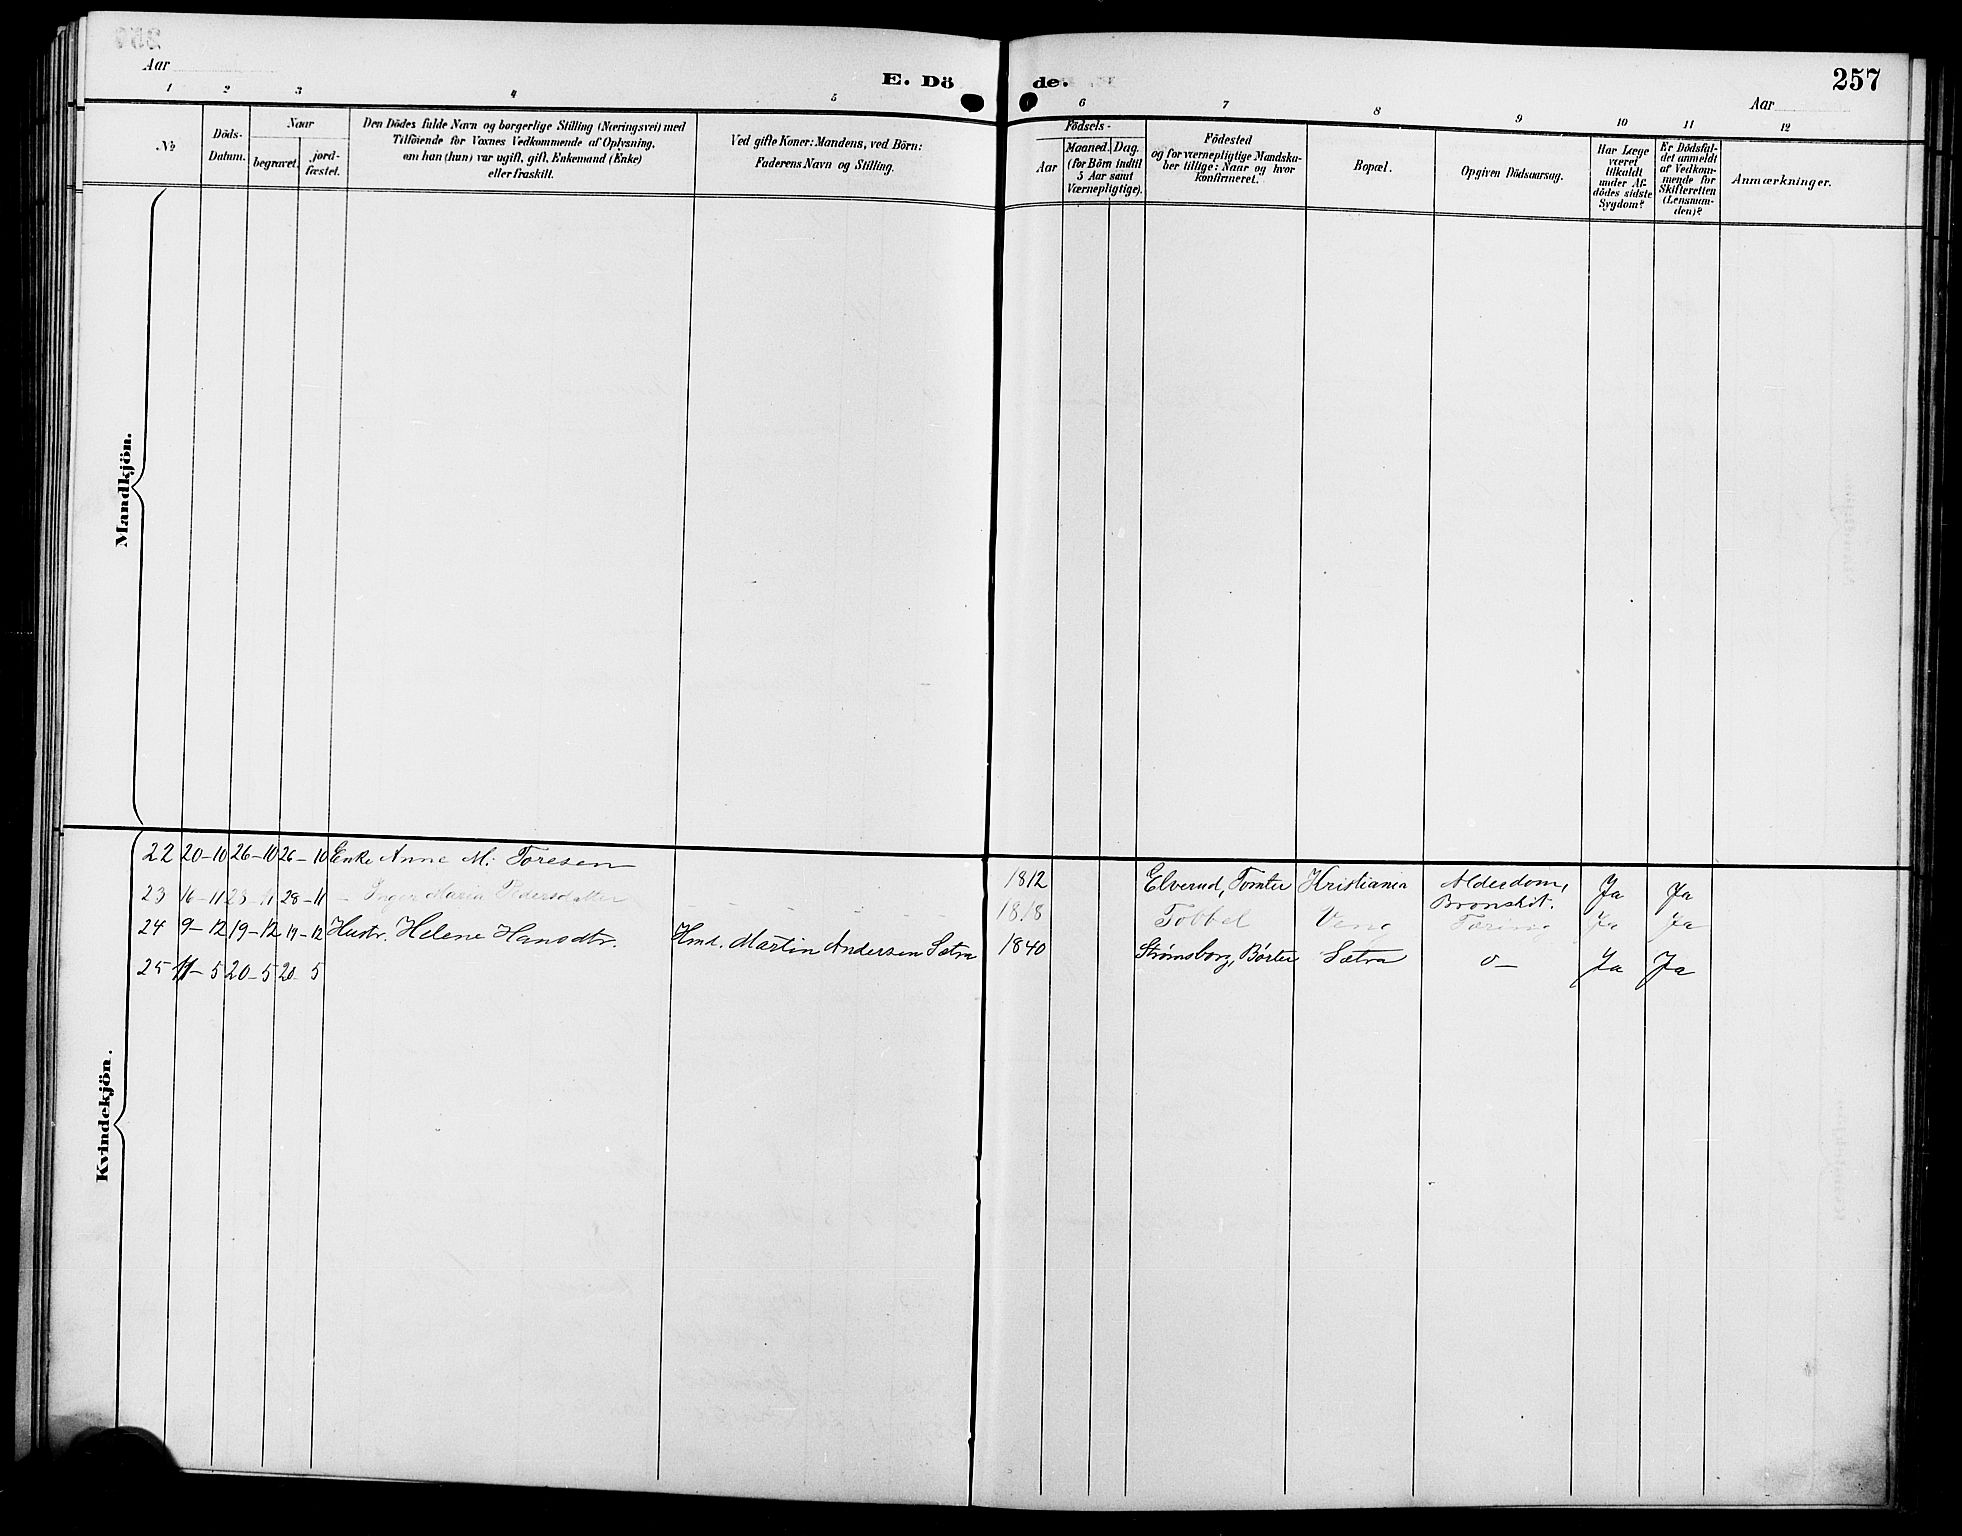 257
Aar
E. Dö de.
Aar
1 2 3 4 5 6 7 8 9 10 11 12
№
Döds-
Datum.
Naar
begravet.
jord-
fæstet.
Den Dödes fulde Navn og borgerlige Stilling (Næringsvei) med
Tilföiende for Voxnes Vedkommende af Oplysning,
om han (hun) var ugift, gift, Enkemand (Enke)
eller fraskilt.
Ved gifte Koner: Mandens, ved Börn:
Faderens Navn og Stilling.
Födsels-
Aar
Maaned. Dag.
(for Börn indtil
5 Aar samt
Værnepligtige).
Födested
og for værnepligtige Mandska-
ber tillige: Naar og hvor
konfirmeret.
Bopæl.
Opgiven Dödsaarsag.
Har Læge
været
tilkaldt
under Af-
dödes sidste
Sygdom?
Er Dödsfal-
det anmeldt
af Vedkom-
mende for
Skifteretten
(Lensman-
den)?
Anmærkninger.
Mandkjön.
Kvindekjön.
22 20-10 26-10 26-10 Enke Anne M. Toresen 1812 Elverud, Tomter Kristiania Alderdom, Ja Ja
Bronskit.
23 16-11 28-11 28-11 - Inger Maria Pedersdatter 1818 Tobbel Veng Ja Ja
24 9-12 19-12 19-12 Hustr. Helene Hansdtr. Hmd. Martin Andersen Sætra 1840 Strømsborg, Børter Sætra o- Ja Ja
25 11-5 20-5 20-5